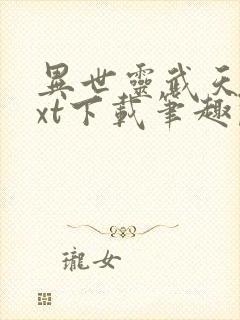 異世靈武天
xt下載筆趣
瓏女